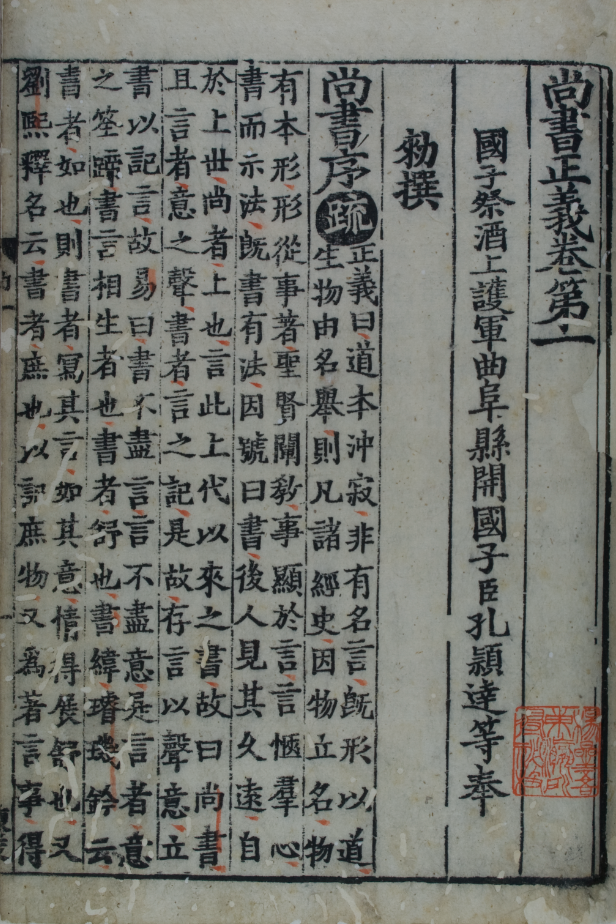 尚書正義卷第一
國子祭酒上護軍曲阜縣開國子臣孔穎達等奉
勑撰
尚書序疏正義曰道本沖寂非有名言既形以道
生物由名舉則凡諸經史因物立名物
有本形形從事著聖賢闡教事顯於言言愜羣心
書而示法既書有法因號曰書後人見其久遠自
於上世尚者上也言此上代以來之書故曰尚書
且言者意之聲書者言之記是故存言以聲意立
書以記言故易曰書不盡言言不盡意是言者意
之筌蹄書言相生者也書者舒也書緯璿璣鈐云
書者如也則書者寫其言如其意情得展舒也又
劉熙釋名云書者庶也以記庶物又爲著言事得